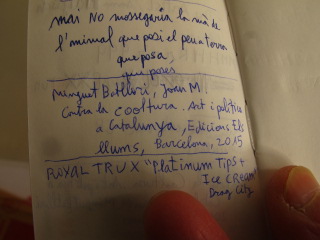 mai NO mossegaria la mà de
l'animal que posi el peu a terra
que posa
que posés
Minguet Batllori, Joan M.
Contra la cooltura. Art i política
a Catalunya, Edicions Els
llums, Barcelona, 2015
ROYAL TRUX "Platinum Tips +
Ice Cream"
Drag City